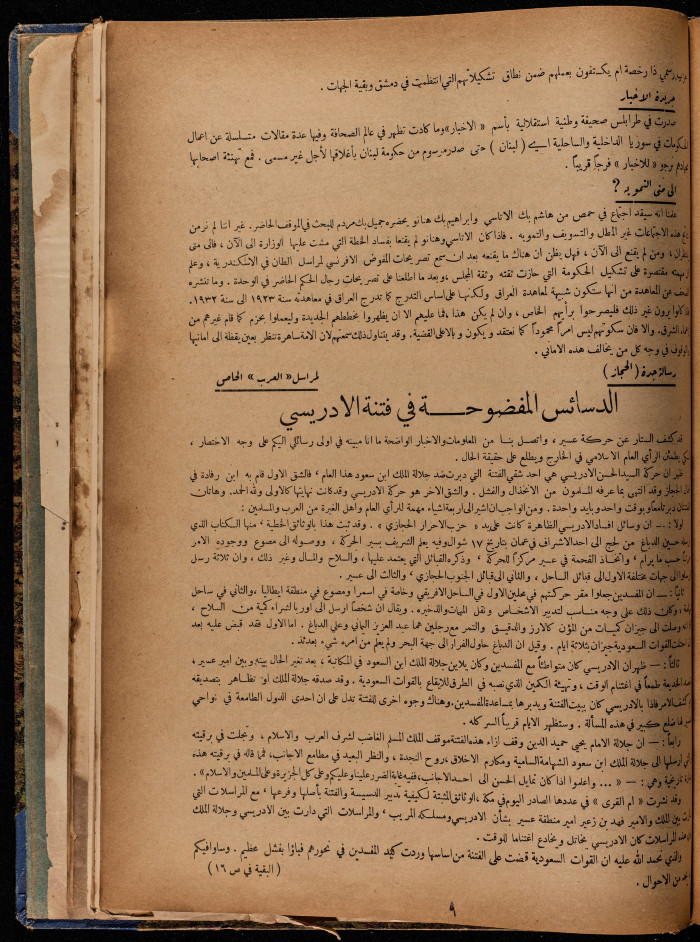 رسمي ذا رخصة ام يكتفون بعملهم ضمن نطاق تشكيلاتهم التي انتظمت في دمشق وبقية الجهات .
جريدة الاخبار
صدرت في طرابلس صحيفة وطنية استقلالية بأسم « الاخبار » وما كادت تظهر في عالم الصحافة وفيها عدة مقالات متسلسلة عن اعمال
الحكومات في سوريا الداخلية والساحلية اي ( لبنان ) حتى صدر مرسوم من حكومة لبنان بأغلاقها لأجل غير مسمى . فمع تهنئة اصحابها
نرجو « للاخبار » فرجاً قريباً .
الى متى التمويه ؟
علمنا انه سيعقد اجتماع في حمص من هاشم بك الاتاسي وابراهيم بك هنانو يحضره جميل بك مردم للبحث في الموقف الحاضر . غير اننا لم نر من
هذه الاجتماعات غير المطل والتسويف والتمويه . فاذا كان الاتاسي وهنانو لم يقنعا بفساد الخطة التي مشت عليها الوزارة الى الآن ، فالى متى
ينتظران ، ومن لم يقنع الى الآن ، فهل يظن ان هناك ما يقنعه بعد ان سمع تصريحات المفوض الافرنسي لمراسل الطان في الاسكندرية ، وعلم
مهمته مقتصرة على تشكيل الحكومة التي حازت ثقته وثقة المجلس ، وبعد ما اطلعنا على تصريحات رجال الحكم الحاضر في الوحدة . وما نشره
الصحف عن المعاهدة من انها ستكون شبيهة لمعاهدة العراق ولكنها على اساس التدرج كما تدرج العراق في معاهدته سنة ١٩٢٣ الى سنة ١٩٣٢
كانوا يرون غير ذلك فليصرحوا برأيهم الخاص ، وان لم يكن هذا ، فما عليهم الا ان يظهروا بخططهم الجديدة وليعملوا بحزم كما قام غيرهم من
الشرق . والا فان سكوتهم ليس امراً محموداً كما نعتقد ويكون وبالا على القضية . وقد يتناول ذلك سمعتهم لان الامة ساهرة تنظر بعين يقظة الى امانيها
والوقوف في وجه كل من يخالف هذه الاماني .
رسالة جدة ( الحجاز ) لمراسل « العرب » الخاص
الدسائس المفضوحة في فتنة الادريسي
قد كشف الستار عن حركة عسير ، واتصل بنا من المعلومات والاخبار الواضحة ما انا مبينه في اولى رسائلي اليكم على وجه الاختصار ،
لكي يطمئن الرأي العام الاسلامي في الخارج ويطلع على حقيقة الحال .
غير ان حركة السيد الحسن الادريسي هي احد شقي الفتنة التي دبرت ضد جلالة الملك ابن سعود هذا العام ، فالشق الاول قام به ابن رفادة في
الحجاز وقد انتهى بما عرفه المسلمون من الانخذال والفشل . والشق الآخر هو حركة الادريسي وقد كانت نهايتها كالاولى ولله الحمد . وهاتان
دبرتا معاً وبوقت واحد وبايد واحدة . ومن الواجب ان اشير الى اربعة اشياء مهمة للرأي العام واهل الغيرة من العرب والمسلمين :
اولا : — ان وسائل افساد الادريسي الظاهرة كانت على يد « حزب الاحرار الحجازي » . وقد ثبت هذا بالوثائق الخطية ، منها الكتاب الذي
حسين الدباغ من لحج الى احد الاشراف في عمان بتاريخ ١٧ شوال وفيه يعلم الشريف بسير الحركة ، ووصوله الى مصوع ووجوده الامر
حسب ما يرام ، واتخاذ القحمة في عسير مركزاً للحركة ، وذكره القبائل التي يعتمد عليها ، والسلاح والمال وغير ذلك ، وان ثلاثة رسل
الى جهات مختلفة الاول الى قبائل الساحل ، والثاني الى قبائل الجنوب الحجازي ، والثالث الى عسير .
ثانياً : — ان المفسدين جعلوا مقر حركتهم في محلين الاول في الساحل الافريقي وخاصة في اسمرا ومصوع في منطقة ايطاليا ، والثاني في ساحل
وكان ذلك على وجه مناسب لتدبير الاشخاص ونقل المهمات والذخيره . ويقال ان شخصاً ارسل الى اوربا لشراء كمية من السلاح ،
وصلت الى جيزان كميات من المؤن كالارز والدقيق والتمر مع رجلين هما عبد العزيز اليماني وعلي الدباغ . اما الاول فقد قبض عليه بعد
دخلت القوات السعودية جيزان بثلاثة ايام . وقيل ان الدباغ حاول الفرار الى جهة البحر ولم يعلم من امره شيء بعدئذ .
ثالثاً : — ظهر ان الادريسي كان متواطئاً مع المفسدين وكان يلاين جلالة الملك ابن السعود في المكاتبة ، بعد تغير الحال بينه وبين امير عسير ،
الخديعة طمعاً في اغتنام الوقت ، وتهيئة الكمين الذي نصبه في الطرق للايقاع بالقوات السعودية . وقد صدقه جلالة الملك او تظاهر بتصديقه
كشف الامر فاذا بالادريسي كان يبيت الفتنة ويدبرها بمساعدة المفسدين . وهناك وجوه اخرى للفتنة تدل على ان احدى الدول الطامعة في نواحي
لها ضلع كبير في هذه المسألة . وستظهر الايام قريباً السر كله .
رابعاً : — ان جلالة الامام يحيى حميد الدين وقف ازاء هذه الفتنة موقف الملك المسلم الغاضب لشرف العرب والاسلام ، وتجلت في برقيته
التي ارسلها الى جلالة الملك ابن سعود الشهامة السامية ومكارم الاخلاق ، روح النجدة ، والنظر البعيد في مطامع الاجانب ، فما قاله في برقيته هذه
تاريخية وهي : — « ... واعلموا اذا كان تمايل الحسن الى احد الاجانب ، ففيه غاية الضرر علينا وعليكم وعلى كل الجزيرة وعلى المسلمين والاسلام » .
وقد نشرت « ام القرى » في عددها الصادر اليوم في مكة ، الوثائق المثبتة لكيفية تدبير الدسيسة والفتنة بأصلها وفرعها ، مع المراسلات التي
دارت بين الملك والامير فهد بن زعير امير منطقة عسير بشأن الادريسي ومسلكه المريب ، والمراسلات التي دارت بين الادريسي وجلالة الملك
هذه المراسلات كان الادريسي يخاتل ويخادع اغتناما للوقت .
والذي نحمد الله عليه ان القوات السعودية قضت على الفتنة من اساسها وردت كيد المفسدين في نحورهم فباؤا بفشل عظيم . وسأوافيكم
من الاحوال . ( البقية في ص ١٦ )
٩